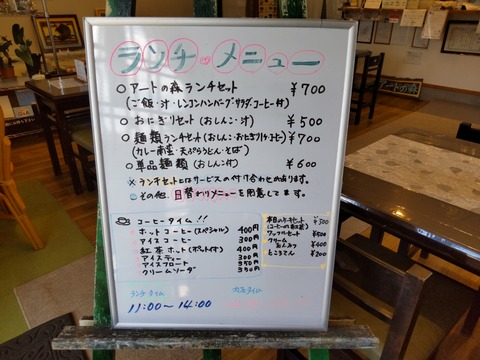 ランチ メニュー
○ アートの森ランチセット ¥700
(ご飯・汁・レンコンハンバーグ・サラダ・コーヒー付)
○ おにぎりセット(おしんこ・汁) ¥500
○ 麺類ランチセット(おしんこ・おにぎり・コーヒー) ¥700
(カレー南蛮・天ぷらうどん・そば)
○ 単品麺類(おしんこ付) ¥600
※ ランチセットにはサービスの付け合わせがあります。
その他、日替わりメニューを用意してます。
コーヒータイム!!
ホットコーヒー(スペシャル) 400円
アイスコーヒー 300〃
紅茶ホット(ポット付) 400円
アイスティー 300〃
アイスフロート 350〃
クリームソーダ 350〃
本日のケーキセット ¥500
(コーヒーor紅茶)
ワッフルセット ¥500
クリームあんみつ ¥400
ところてん ¥200
ランチタイム
11:00〜14:00